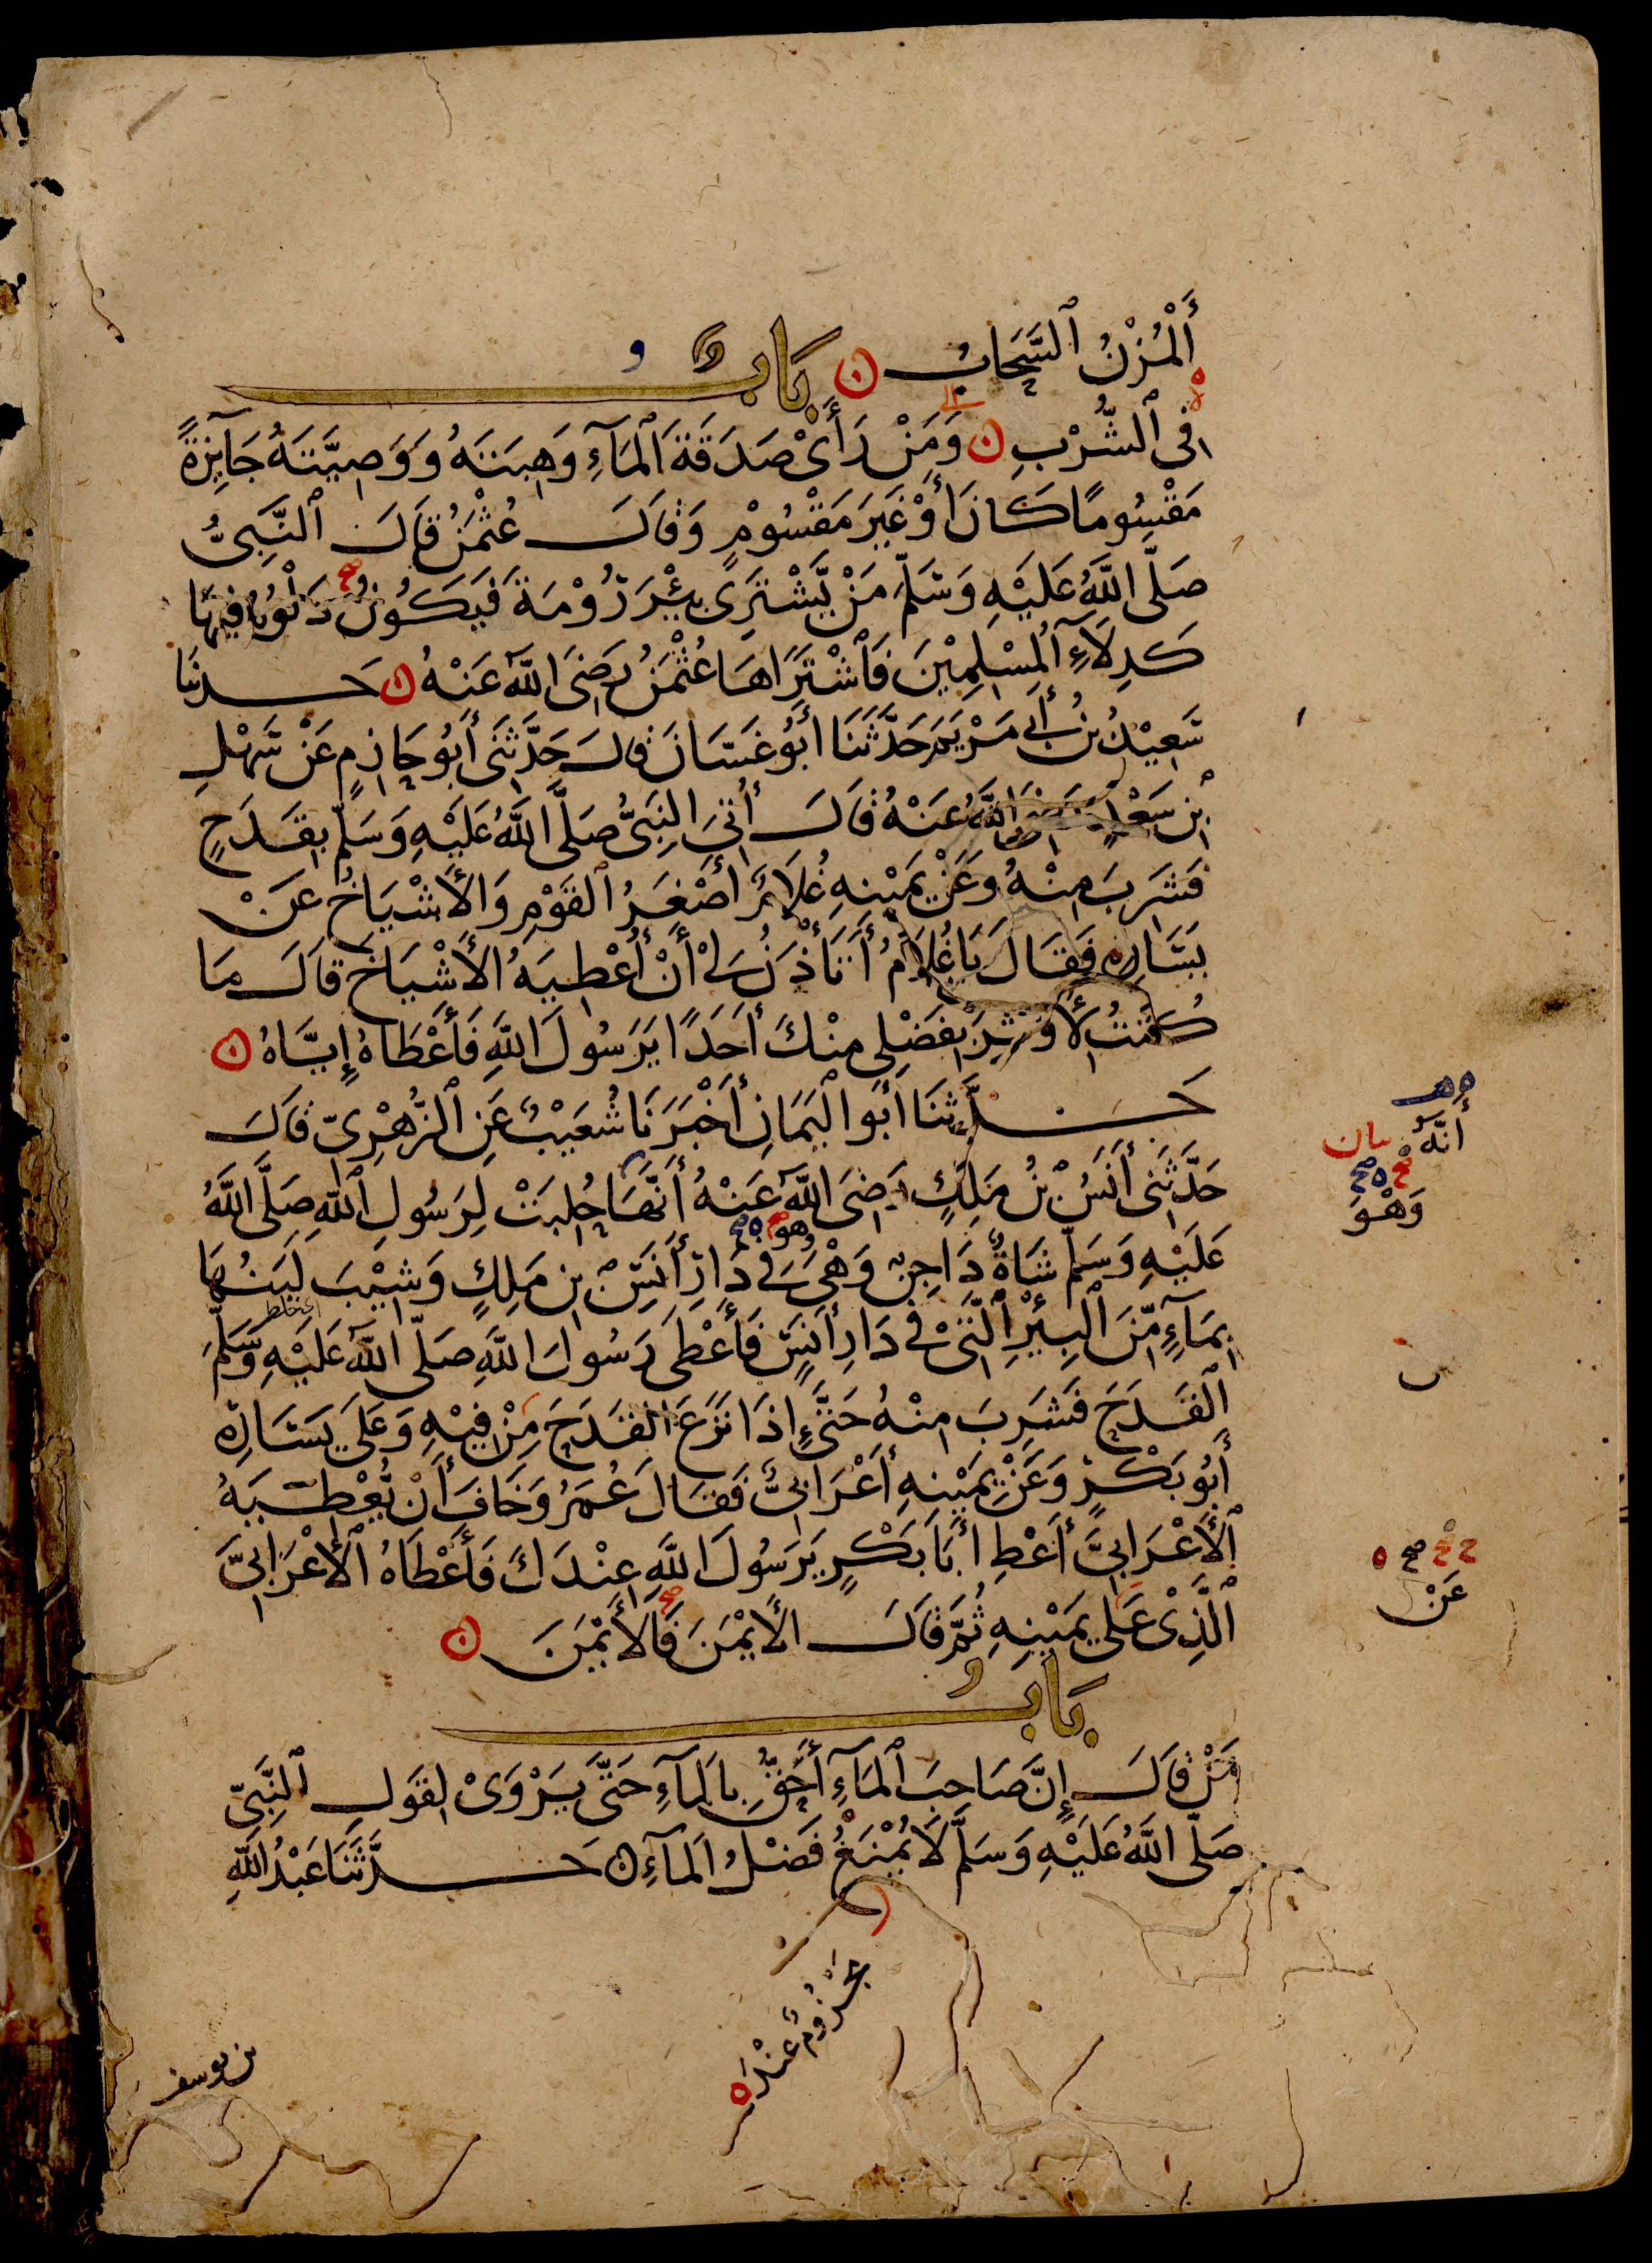 أَلْمُزْنُ ٱلسَّحَابُ بَابٌ
فِى ٱلشُّرْبِ وَمَنْ رَأَىْ صَدَقَةَ ٱلْمَآءِ وَهِبَتَهُ وَوَصِيَّتَهُ جَآئِزَةً
مَقْسُومًا كَانَ أَوْ غَيْرَ مَقْسُوْمٍ وَقَالَ عُثْمٰنُ قَالَ ٱلنَّبِىُّ
صَلَّى اللَّهُ عَلَيْهِ وَسَلَّمَ مَنْ يَّشْتَرِى بِئْرَ رُوْمَةَ فَيَكُوْنُ دَلْوُهُ فِيْهَا
كَدِلَآءِ ٱلْمُسْلِمِيْنَ فَٱشْتَرَاهَا عُثْمٰنُ رَضِىَ اللَّهُ عَنْهُ حَدثنَا
سَعِيْدُ بْنُ أَبِى مَرْيَمَ حَدَّثَنَا أَبُوْ غَسَّانَ قَالَ حَدَّثَنِى أَبُو حَازِمٍ عَنْ سَهْلِ
بْنِ سَعْدٍ رَضِىَ اللَّهُ عَنْهُ قَالَ أُتِىَ النَّبِىُّ صَلَّى اللَّهُ عَلَيْهِ وَسَلَّمَ بِقَدَحٍ
فَشَرِبَ مِنْهُ وَعَنْ يَمِيْنِهِ غُلَامٌ أَصْغَرُ ٱلْقَوْمِ وَالْأَشْيَاخُ عَنْ
يَسَارِهِ فَقَالَ يَا غُلَامُ أَتَأْذَنُ لِىْ أَنْ أُعْطِيَهُ الْأَشْيَاخَ قَالَ مَا
كُنْتُ لِأُوثِرَ بِفَضْلِى مِنْكَ أَحَدًا يَرَسُولَ اللَّهِ فَأَعْطَاهُ إِيَّاهُ
حَدَّثَنَا أَبُو الْيَمَانِ أَخْبَرَنَا شُعَيْبٌ عَنِ ٱلزُّهْرِىِّ قَالَ
حَدَّثَنِى أَنَسُ بْنُ مٰلِكٍ رَضِىَ اللَّهُ عَنْهُ أَنَّهَا حُلِبَتْ لِرَسُولِ ٱللَّهِ صَلَّى اللَّهُ
عَلَيْهِ وَسَلَّمَ شَاةٌ دَاجِنٌ وَهْىَ فِى دَارِ أَنَسِ بْنِ مٰلِكٍ وَشِيْبَ لَبَنُهَا
وهو
اى خلط
بِمَآءٍ مِّنَ ٱلْبِئْرِ ٱلَّتِىْ فِى دَارِ أَنَسٍ فَأَعْطَى رَسُولَ اللَّهِ صَلَّى اللَّهُ عَلَيْهِ وَسَلَّمَ
ٱلْقَدَحَ فَشَرِبَ مِنْهُ حَتَّىٰ إِذَا نَزَعَ الْقَدَحَ مِنْ فِيْهِ وَعَلَى يَسَارِهِ
أَبُو بَكْرٍ وَعَنْ يَمِيْنِهِ أَعْرَابِىٌّ فَقَالَ عُمَرُ وَخَافَ أَنْ يُّعْطِيَهُ
ٱلْأَعْرَابِىَّ أَعْطِ أَبَا بَكْرٍ يَرَسُولَ اللَّهِ عِنْدَكَ فَأَعْطَاهُ الْأَعْرَابِىَّ
ٱلَّذِىْ عَلَى يَمِيْنِهِ ثُمَّ قَالَ الْأَيْمَنَ فَالْأَيْمَنَ
بَابُ
مَنْ قَالَ إِنَّ صَاحِبَ ٱلْمَآءِ أَحَقُّ بِالْمَآءِ حَتَّى يَرْوَىْ لِقَولِ ٱلنَّبِىِّ
صَلَّى اللَّهُ عَلَيْهِ وَسَلَّمَ لَا يُمْنَعُ فَضْلُ الْمَآءِ حَدَّثَنَا عَبْدُ اللَّهِ
أَنَّهُ
وَهْوَ
عَنْ
مجزُومٌ عِنْدَ ه
بن يوسف